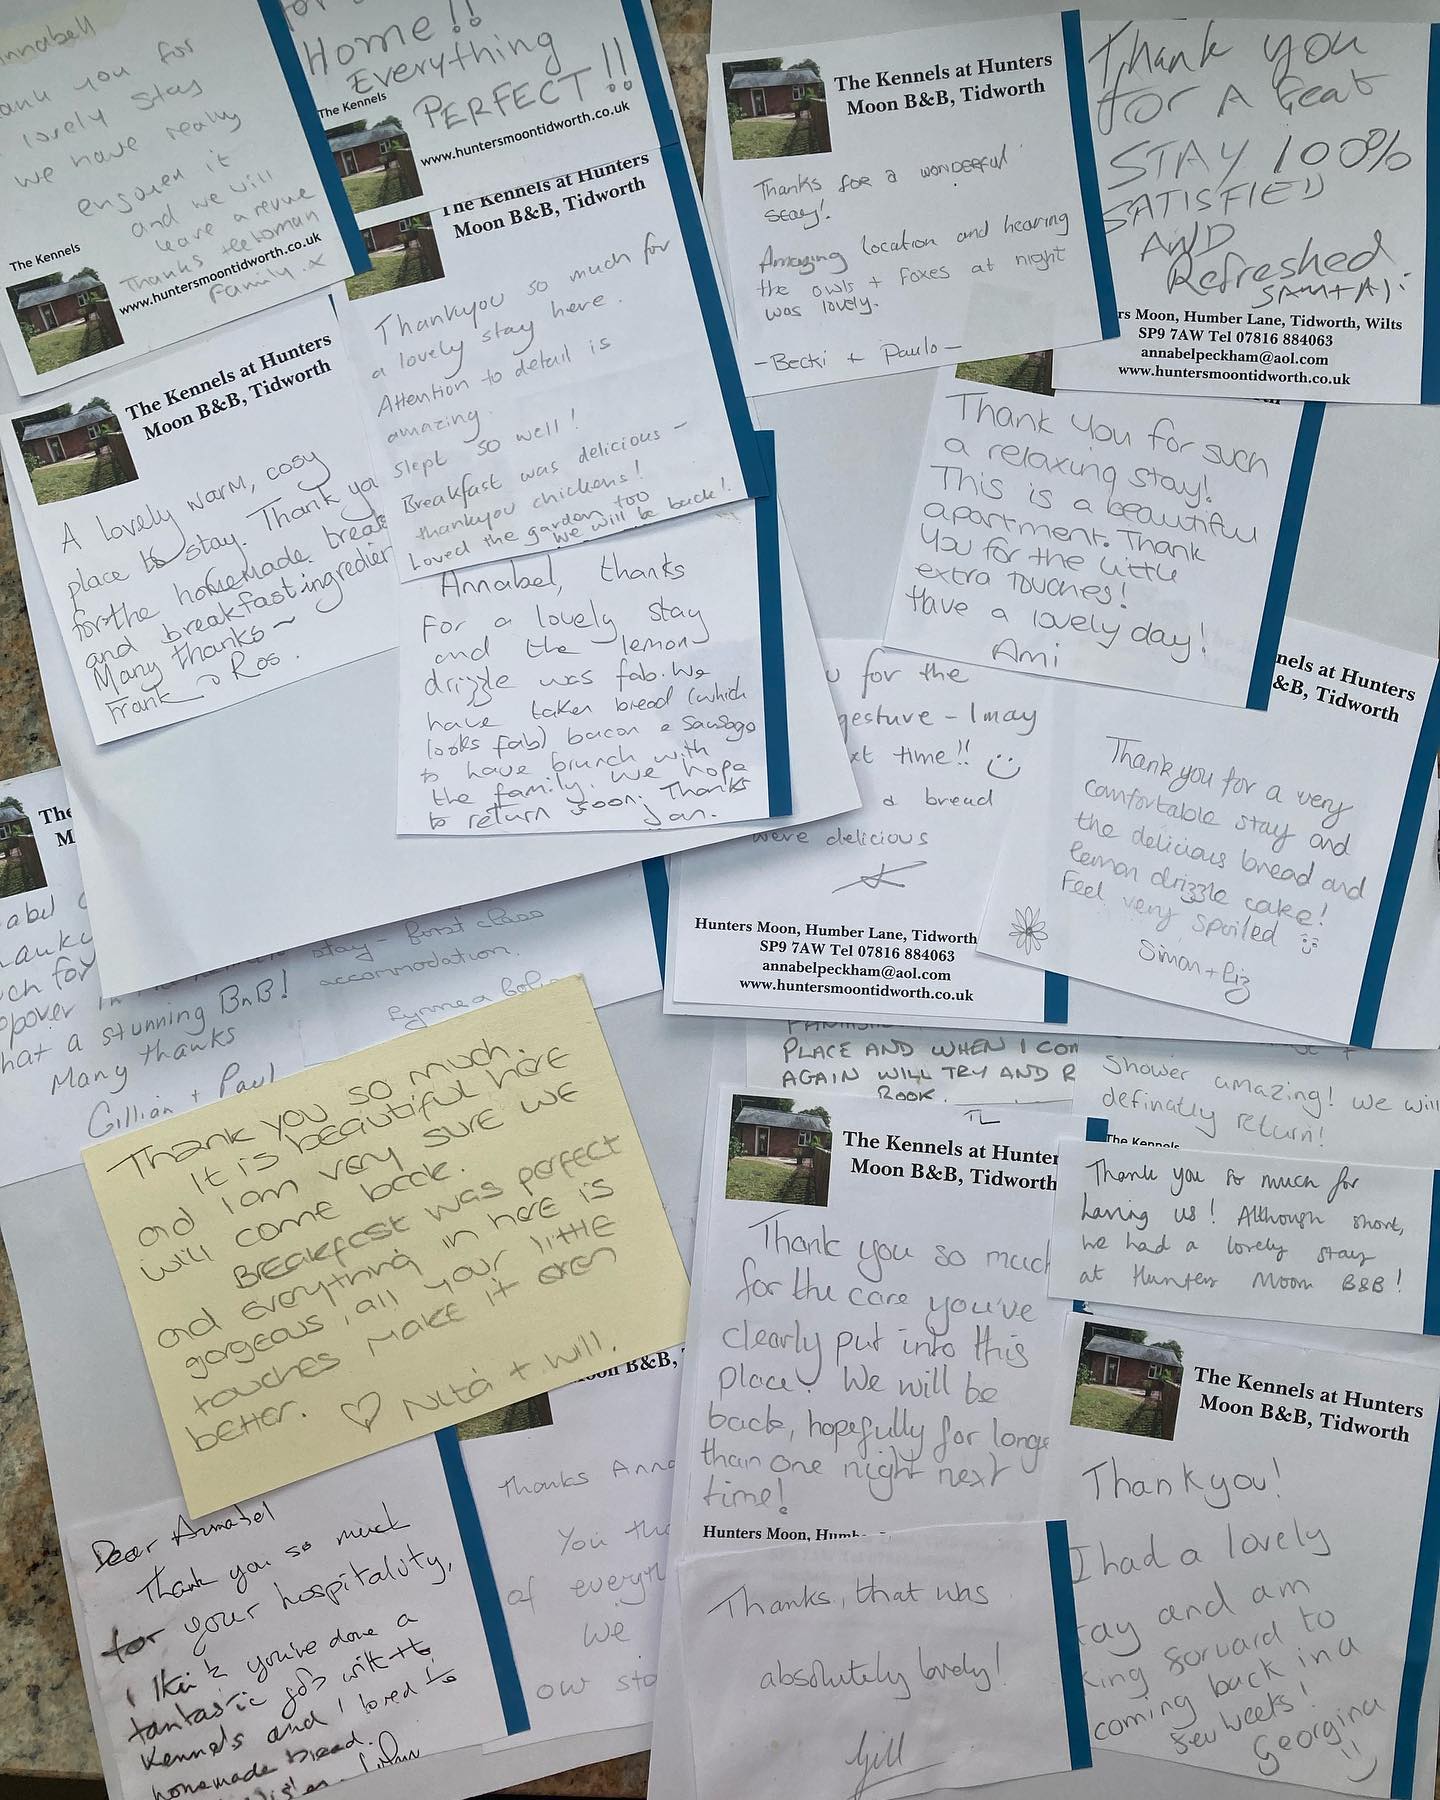 nnabell
ank you for
lovely stay
we have really
and we will
leave a revue
Thanks
family. x
The Kennels
www.huntersmoontidworth.co.uk
Home!!
Everything
PERFECT!!
The Kennels
www.huntersmoontidworth.co.uk
The Kennels at Hunters
Moon B&B, Tidworth
Thankyou so much for
a lovely stay here.
Attention to detail is
amazing.
Slept so well!
Breakfast was delicious -
thankyou chickens!
Loved the garden too
we will be back!
The Kennels at Hunters
Moon B&B, Tidworth
Thanks for a wonderful
stay!
Amazing location and hearing
the owls + foxes at night
was lovely.
- Becki + Paulo -
Thank you
for A Geat
STAY 100%
SATISFIED
AND
Refreshed
SAM + Ali
rs Moon, Humber Lane, Tidworth, Wilts
SP9 7AW Tel 07816 884063
annabelpeckham@aol.com
www.huntersmoontidworth.co.uk
The Kennels at Hunters
Moon B&B, Tidworth
A lovely warm, cosy
place to stay. Thank you
for the homemade bread
and breakfast ingredien
Many thanks ~
Frank & Ros.
Annabel, thanks
for a lovely stay
and the lemon
drizzle was fab. We
have taken bread (which
looks fab) bacon & sausage
to have brunch with
the family. We hope
to return soon. Thanks
Jan.
Thank you for such
a relaxing stay!
This is a beautiful
apartment. Thank
you for the little
extra touches!
Have a lovely day!
Ami
u for the
gesture - I may
xt time!! :)
& bread
were delicious
Hunters Moon, Humber Lane, Tidworth
SP9 7AW Tel 07816 884063
annabelpeckham@aol.com
www.huntersmoontidworth.co.uk
nels at Hunters
&B, Tidworth
Thank you for a very
comfortable stay and
the delicious bread and
lemon drizzle cake!
Feel very spoiled
Simon + Liz
The
M
abel
hanky
ch for
opover in
stay - first class
accommodation.
hat a stunning BnB!
Many thanks
Gillian + Paul
Thank you so much.
It is beautiful here
and I am very sure we
will come back.
Breakfast was perfect
and everything in here is
gorgeous, all your little
touches make it even
better. ♡ Nita + Will.
PLACE AND WHEN I COM
AGAIN WILL TRY AND R
BOOK.
TL
shower amazing! we will
definatly return!
The Kennels
The Kennels at Hunter
Moon B&B, Tidworth
Thank you so much
for the care you've
clearly put into this
place! We will be
back, hopefully for longe
than one night next
time!
Hunters Moon, Humbe
Thank you so much for
having us! Although short,
we had a lovely stay
at Hunters Moon B&B!
The Kennels at Hunters
Moon B&B, Tidworth
Thankyou!
I had a lovely
tay and am
king forward to
coming back in a
few weeks!
Georgina
Moon B&B,
Thanks Anna
You tho
of everyt
We
our sta
Dear Annabel
Thank you so much
for your hospitality,
I think you've done a
fantastic job with the
Kennels and I loved the
homemade bread.
Thanks, that was
absolutely lovely!
Gill